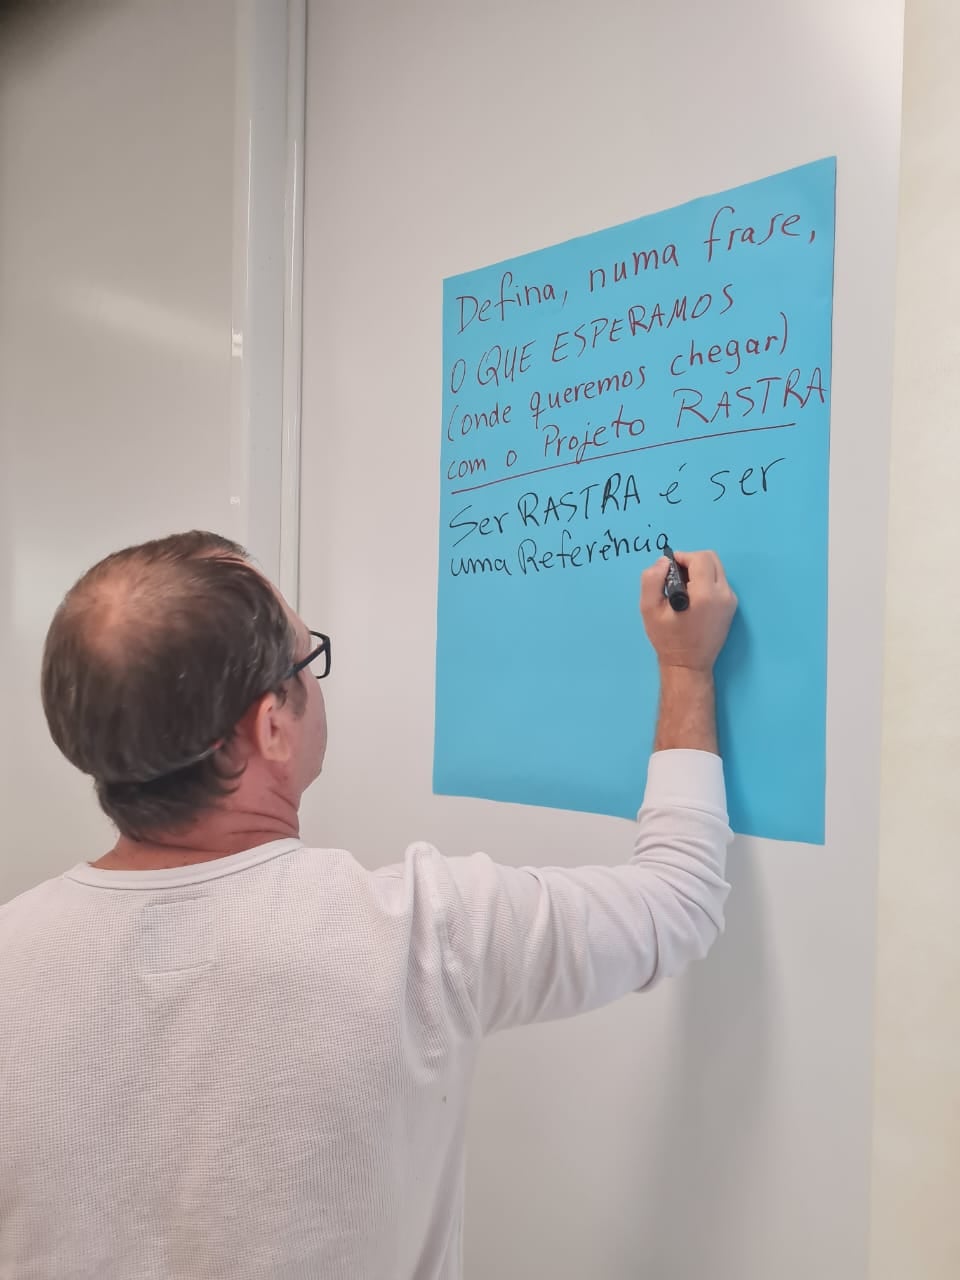 Defina, numa frase,
O QUE ESPERAMOS
(onde queremos chegar)
com o Projeto RASTRA
Ser RASTRA é ser
uma Referência